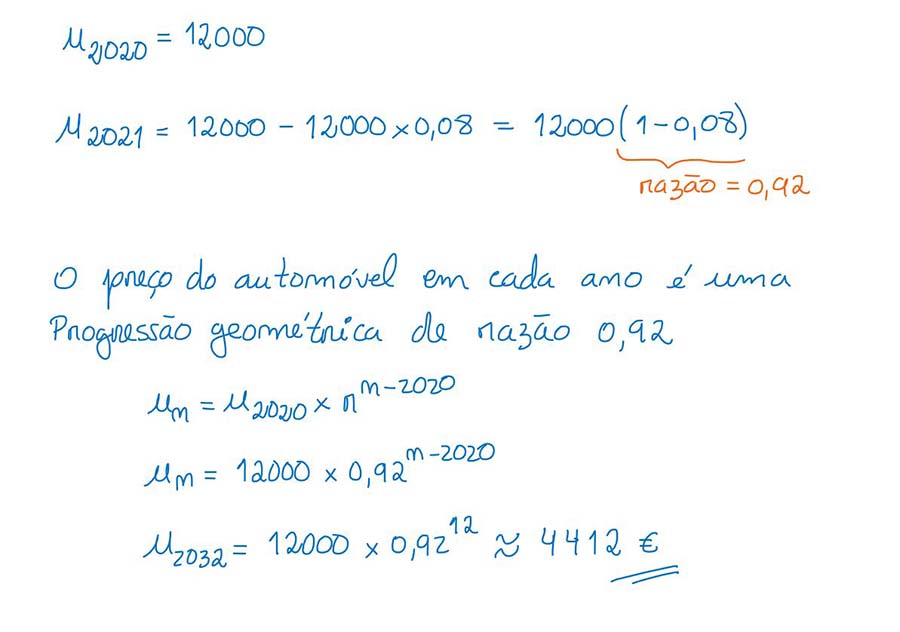 u₂₀₂₀ = 12000
u₂₀₂₁ = 12000 − 12000 × 0,08 = 12000(1−0,08)
razão = 0,92
O preço do automóvel em cada ano é uma
Progressão geométrica de razão 0,92
uₙ = u₂₀₂₀ × r^(n−2020)
uₙ = 12000 × 0,92^(n−2020)
u₂₀₃₂ = 12000 × 0,92^12 ≈ 4412 €